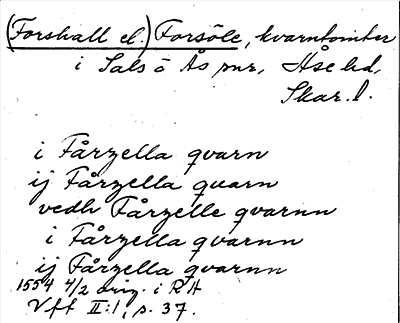 (Forshall el.) Forsöle, kvarntomter
i Sals o Ås snr, Åse hd,
Skar. l.
i Fårzella qvarn
ij Fårzella quarn
vedh Fårzelle qvarnn
i Fårzella qvarnn
ij Fårzella qvarnn
1554 4/2 orig. i RA
Vft II:1, s. 37.